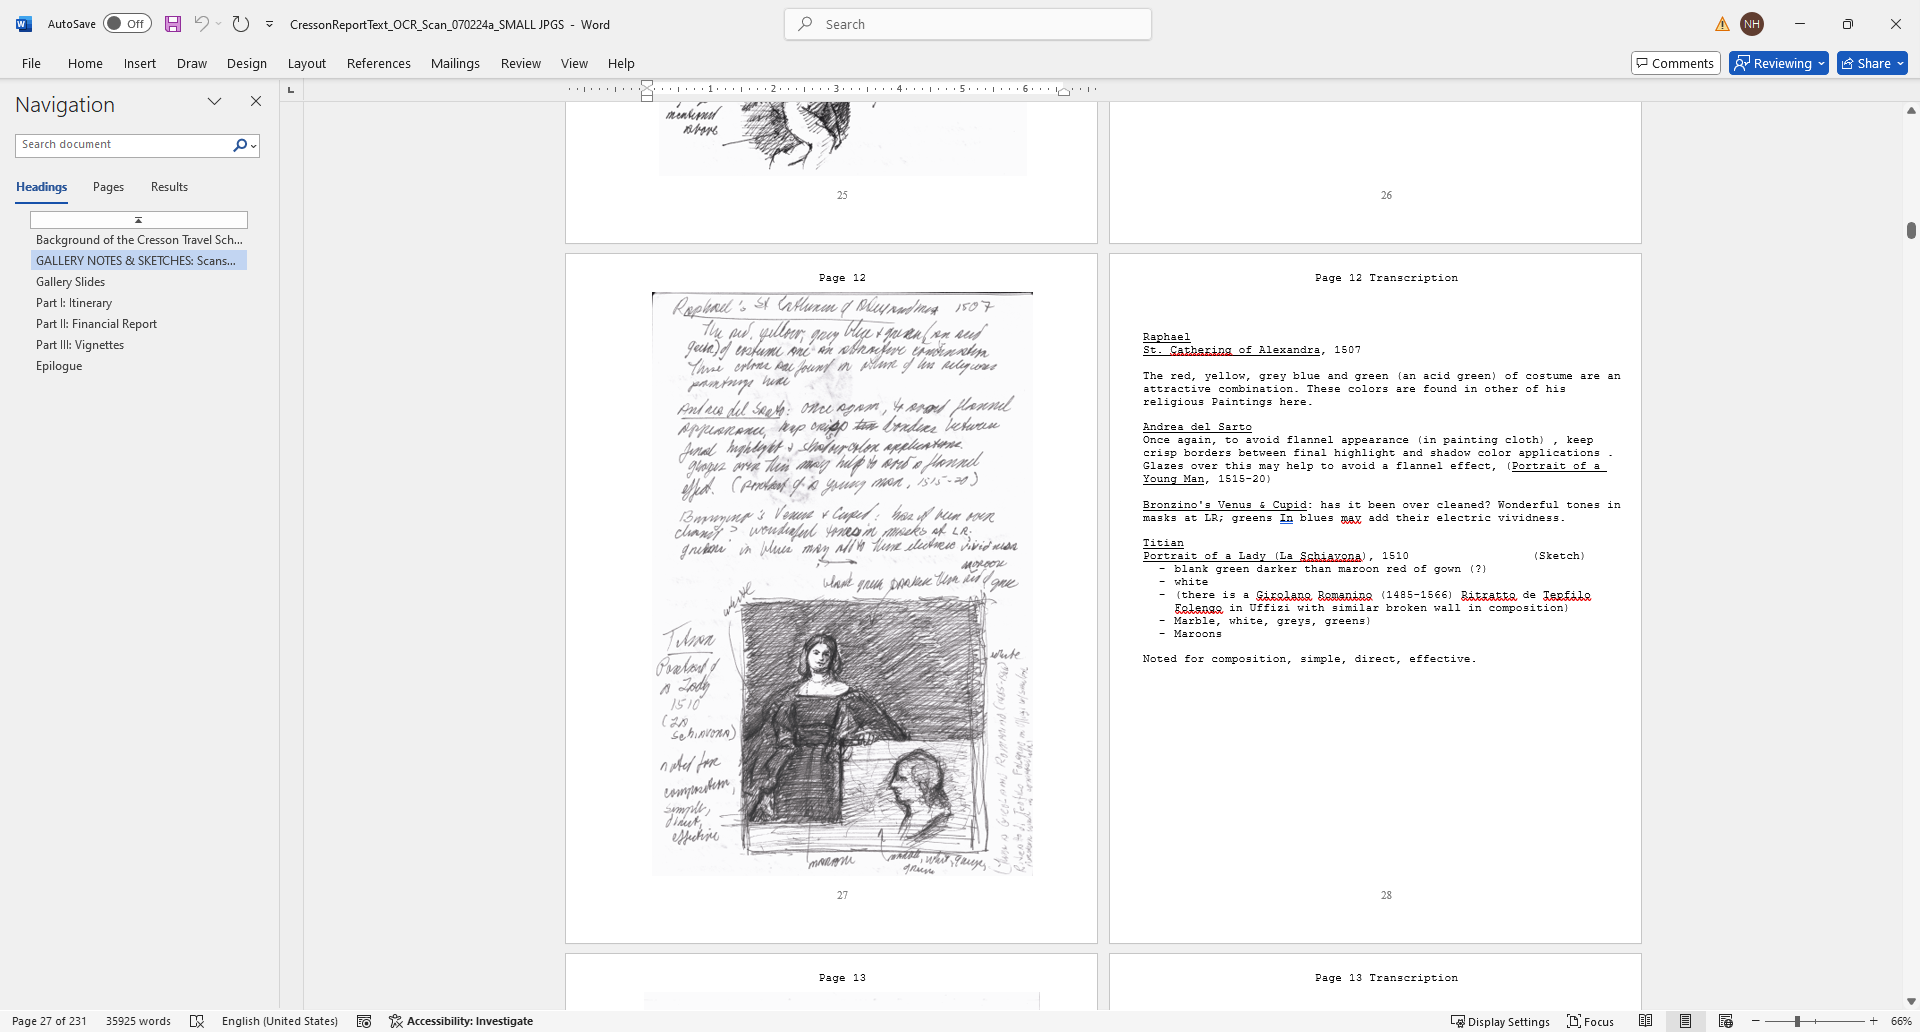 AutoSave Off CressonReportText_OCR_Scan_070224a_SMALL JPGS - Word Search NH
File Home Insert Draw Design Layout References Mailings Review View Help Comments Reviewing Share
Navigation
Search document
Headings Pages Results
Background of the Cresson Travel Sch...
GALLERY NOTES & SKETCHES: Scans...
Gallery Slides
Part I: Itinerary
Part II: Financial Report
Part III: Vignettes
Epilogue
1 2 3 4 5 6
mentioned
above
25
26
Page 12
Raphael's St Catherine of Alexandria 1507
The red, yellow, grey blue & green (an acid
green) of costume are an attractive combination
These colors are found in other of his religious
paintings here
Andrea del Sarto: once again, to avoid flannel
appearance, keep crisp borders between
final highlight & shadow color applications.
glazes over this may help to avoid a flannel
effect. (Portrait of a young man, 1515-20)
Bronzino's Venus & Cupid: has it been over
cleaned? wonderful tones in masks at LR.
greens in blues may add to their electric vividness
maroon
blank green darker than red of gown
white
Titian
Portrait of
a Lady
1510
(La
Schiavona)
noted for
composition,
simple,
direct,
effective
white
maroon
marble, white, greys,
greens
27
Page 12 Transcription
Raphael
St. Cathering of Alexandra, 1507
The red, yellow, grey blue and green (an acid green) of costume are an
attractive combination. These colors are found in other of his
religious Paintings here.
Andrea del Sarto
Once again, to avoid flannel appearance (in painting cloth) , keep
crisp borders between final highlight and shadow color applications .
Glazes over this may help to avoid a flannel effect, (Portrait of a
Young Man, 1515-20)
Bronzino's Venus & Cupid: has it been over cleaned? Wonderful tones in
masks at LR; greens In blues may add their electric vividness.
Titian
Portrait of a Lady (La Schiavona), 1510 (Sketch)
- blank green darker than maroon red of gown (?)
- white
- (there is a Girolano Romanino (1485-1566) Ritratto de Tepfilo
Folengo in Uffizi with similar broken wall in composition)
- Marble, white, greys, greens)
- Maroons
Noted for composition, simple, direct, effective.
28
Page 13
Page 13 Transcription
Page 27 of 231 35925 words English (United States) Accessibility: Investigate Display Settings Focus 66%